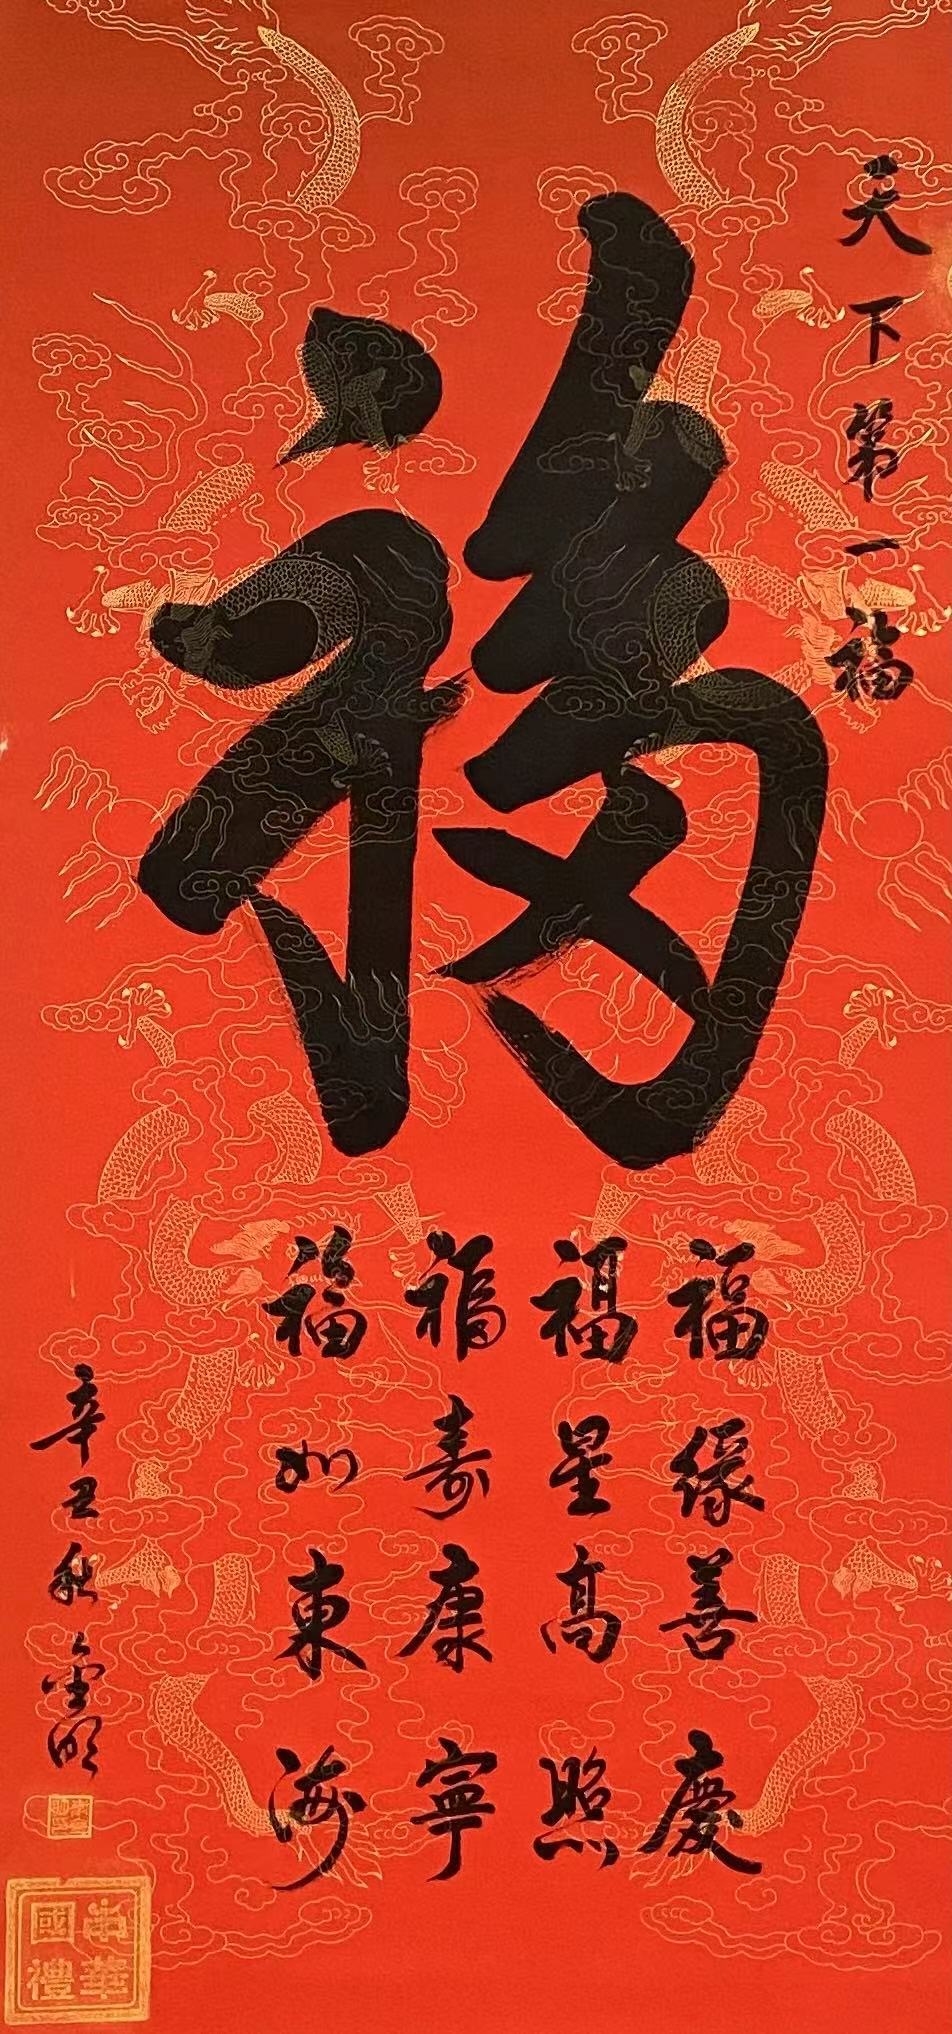 天下第一福
福
福缘善慶
福星高照
福寿康寧
福如東海
辛丑秋
中華國禮